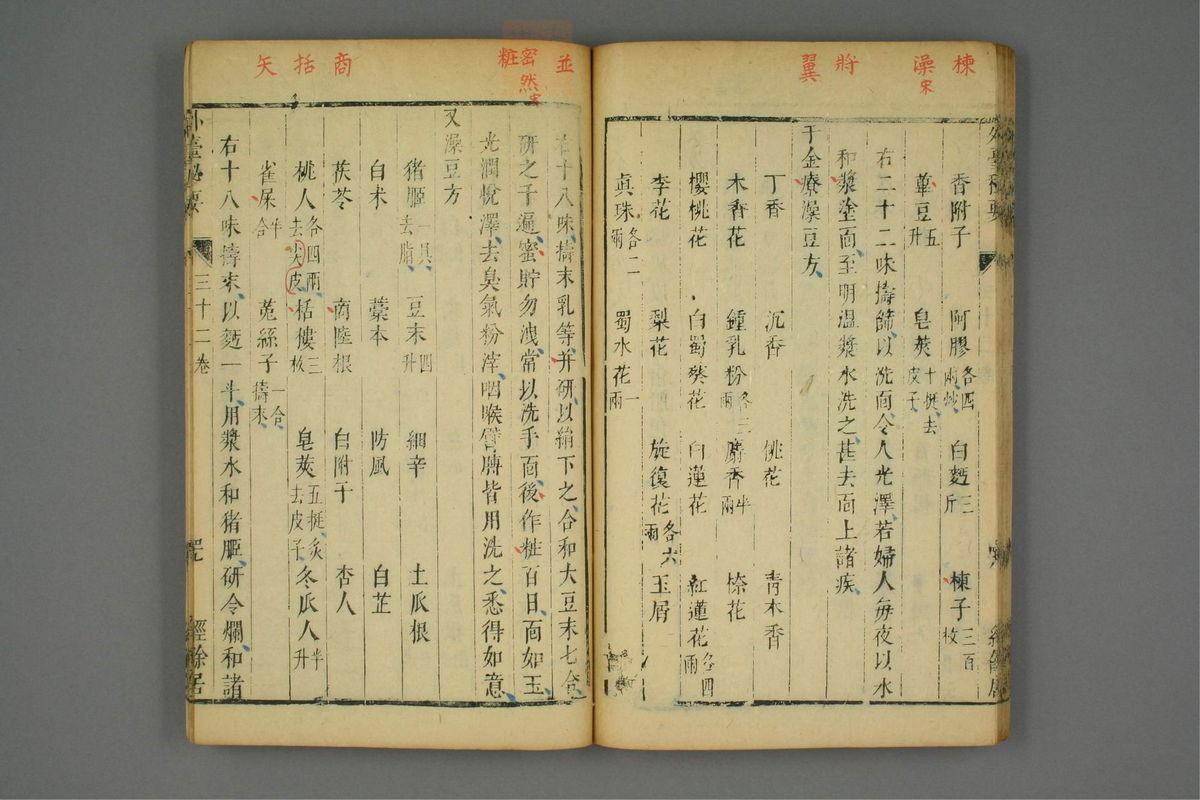 楝
澡宋
將
翼
並
密然宋
粧
商
括
矢
香附子 阿膠各四兩炒 白麪三斤 楝子三百枚
蓽豆五升 皂莢十挺去皮子
右二十二味擣篩以洗面令人光澤若婦人每夜以水
和漿塗面至明温漿水洗之甚去面上諸疾
千金療澡豆方
丁香 沉香 桃花 青木香
木香花 鍾乳粉各三兩 麝香半兩 㮈花
櫻桃花 白蜀葵花 白蓮花 紅蓮花各四兩
李花 梨花 旋復花各六兩 玉屑
眞珠各二兩 蜀水花一兩
右十八味擣末乳等并研以絹下之合和大豆末七合
研之千遍蜜貯勿洩常以洗手面後作粧百日面如玉
光潤悅澤去臭氣粉滓咽喉臂膊皆用洗之悉得如意
又澡豆方
猪脏一具去脂 豆末四升 細辛 土瓜根
白术 藁本 防風 白芷
茯苓 商陸根 白附子 杏人
桃人各四兩去尖皮 栝樓三枚 皂莢五挺炙去皮子 冬瓜人半升
雀屎半合 菟絲子一合擣末
右十八味擣末以麪一斗用漿水和猪脏研令爛和諸
外臺秘要 三十二卷 經餘居